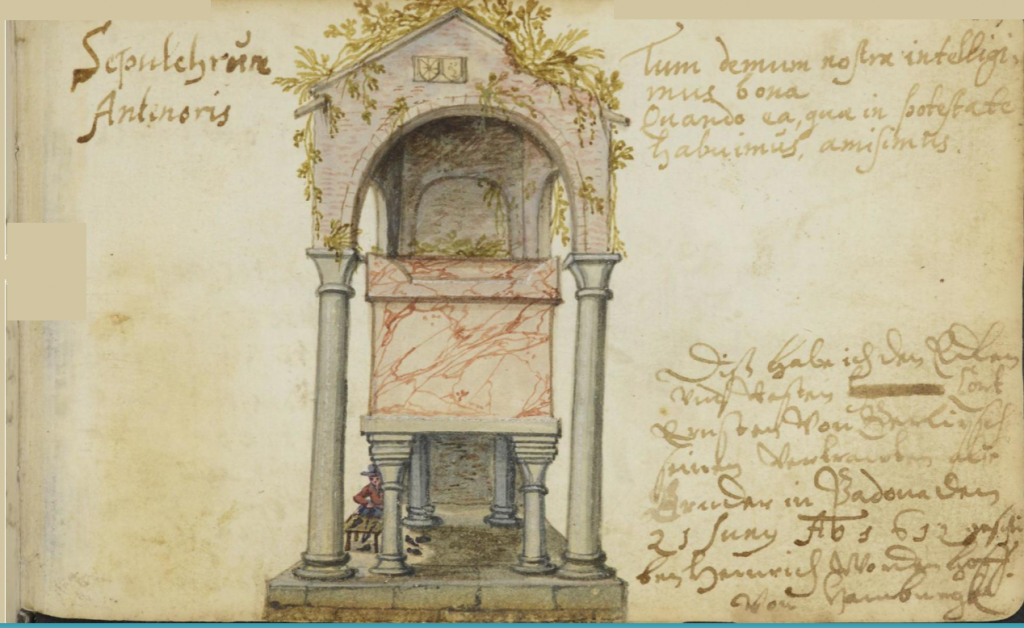 Sepulchrum
Antenoris
Tum demum nostra intelligi-
mus bona
Quando ea, quae in potestate
habuimus, amisimus.
Diß habe ich dem Edlen
und Vesten Cort
Ernsten Von Berlipsch
seinen Vertrauten
Bruder in Padoua den
21 Juny Ao 1612 geschri
ben Heinrich
Von Hamburgk